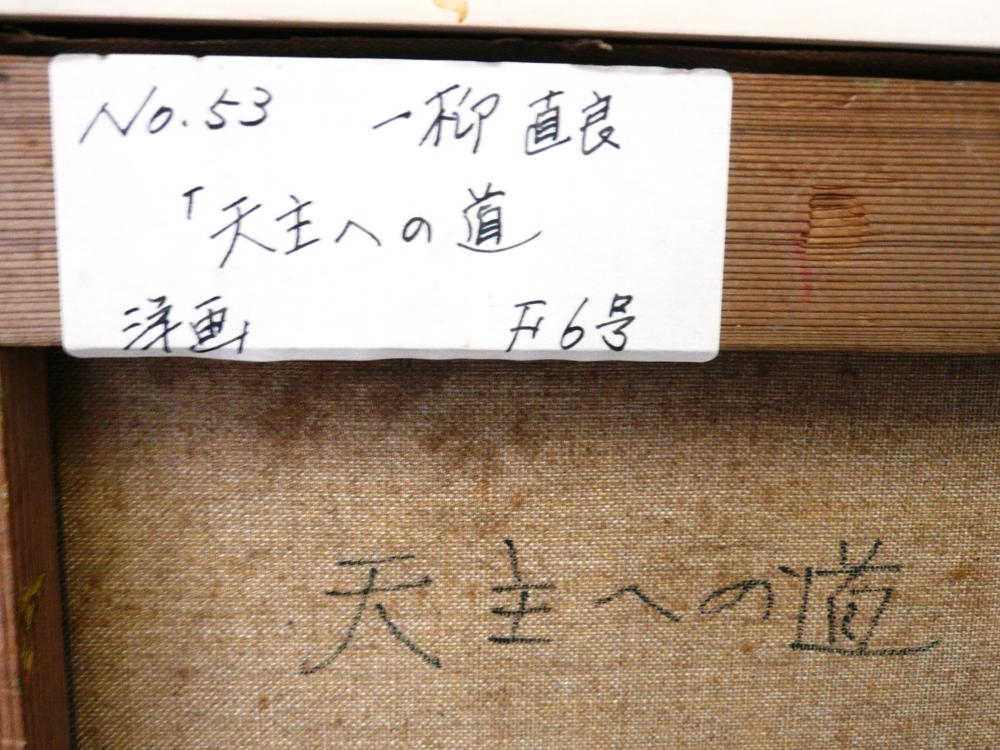 No.53 一柳 直良
「天主への道
洋画 F6号
天主への道